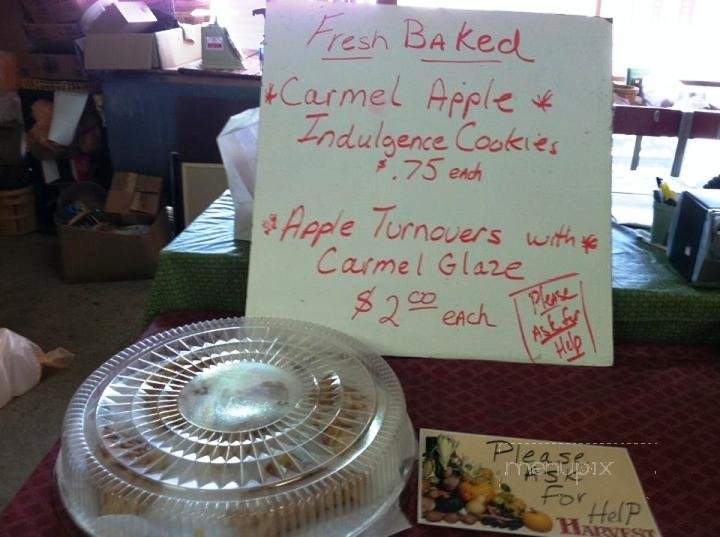 Fresh Baked
*Carmel Apple *
Indulgence Cookies
$.75 each
*Apple Turnovers with *
Carmel Glaze
$2.00 each
Please
Ask for
Help
Please
Ask
For
Help
HARVEST
menupix